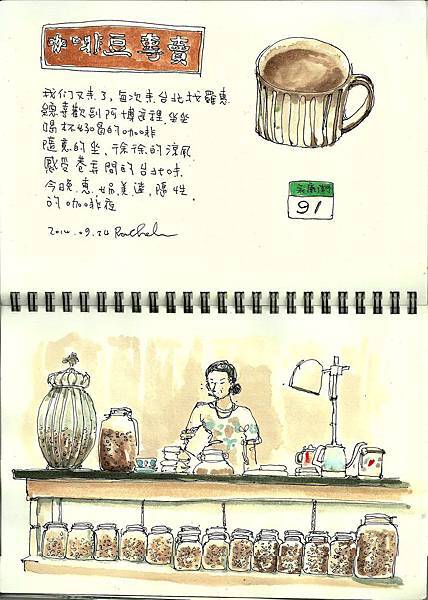 咖啡豆專賣
我们又来了，每次来台北找羅惠
總喜歡到阿博這裡坐坐
喝杯好喝的咖啡
隨意的坐、徐徐的涼風
感受巷弄間的台北味
今晚惠、娟、美達、隨性
的咖啡夜
2014.09.24 Rachel
91